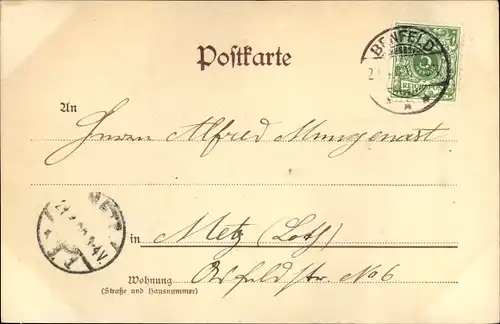 BENFELD
Postkarte
An
Herrn Alfred Mungenast
METZ
in Metz (Loth)
Wohnung
(Straße und Hausnummer)
str. No 6